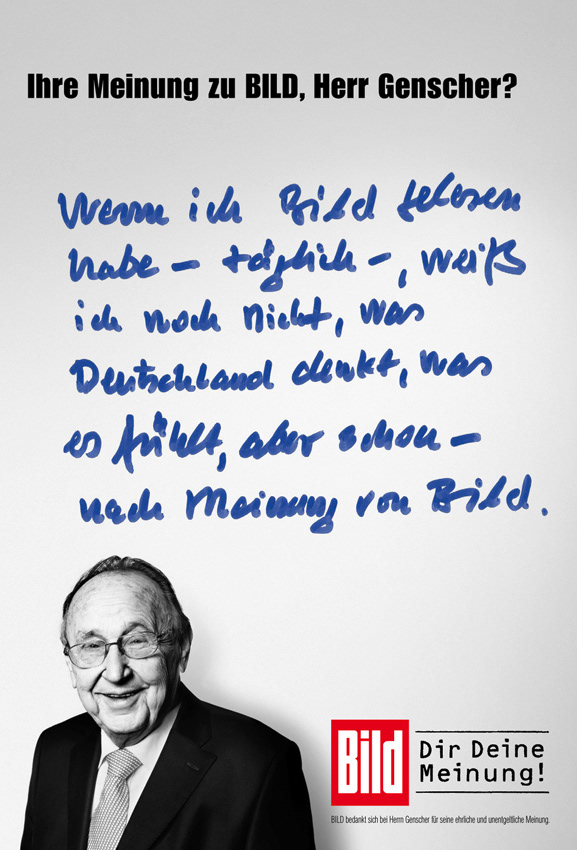 Ihre Meinung zu BILD, Herr Genscher?
Wenn ich Bild gelesen
habe – täglich –, weiß
ich noch nicht, was
Deutschland denkt, was
es fühlt, aber schon –
nach Meinung von Bild.
Bild
Dir Deine
Meinung!
BILD bedankt sich bei Herrn Genscher für seine ehrliche und unentgeltliche Meinung.